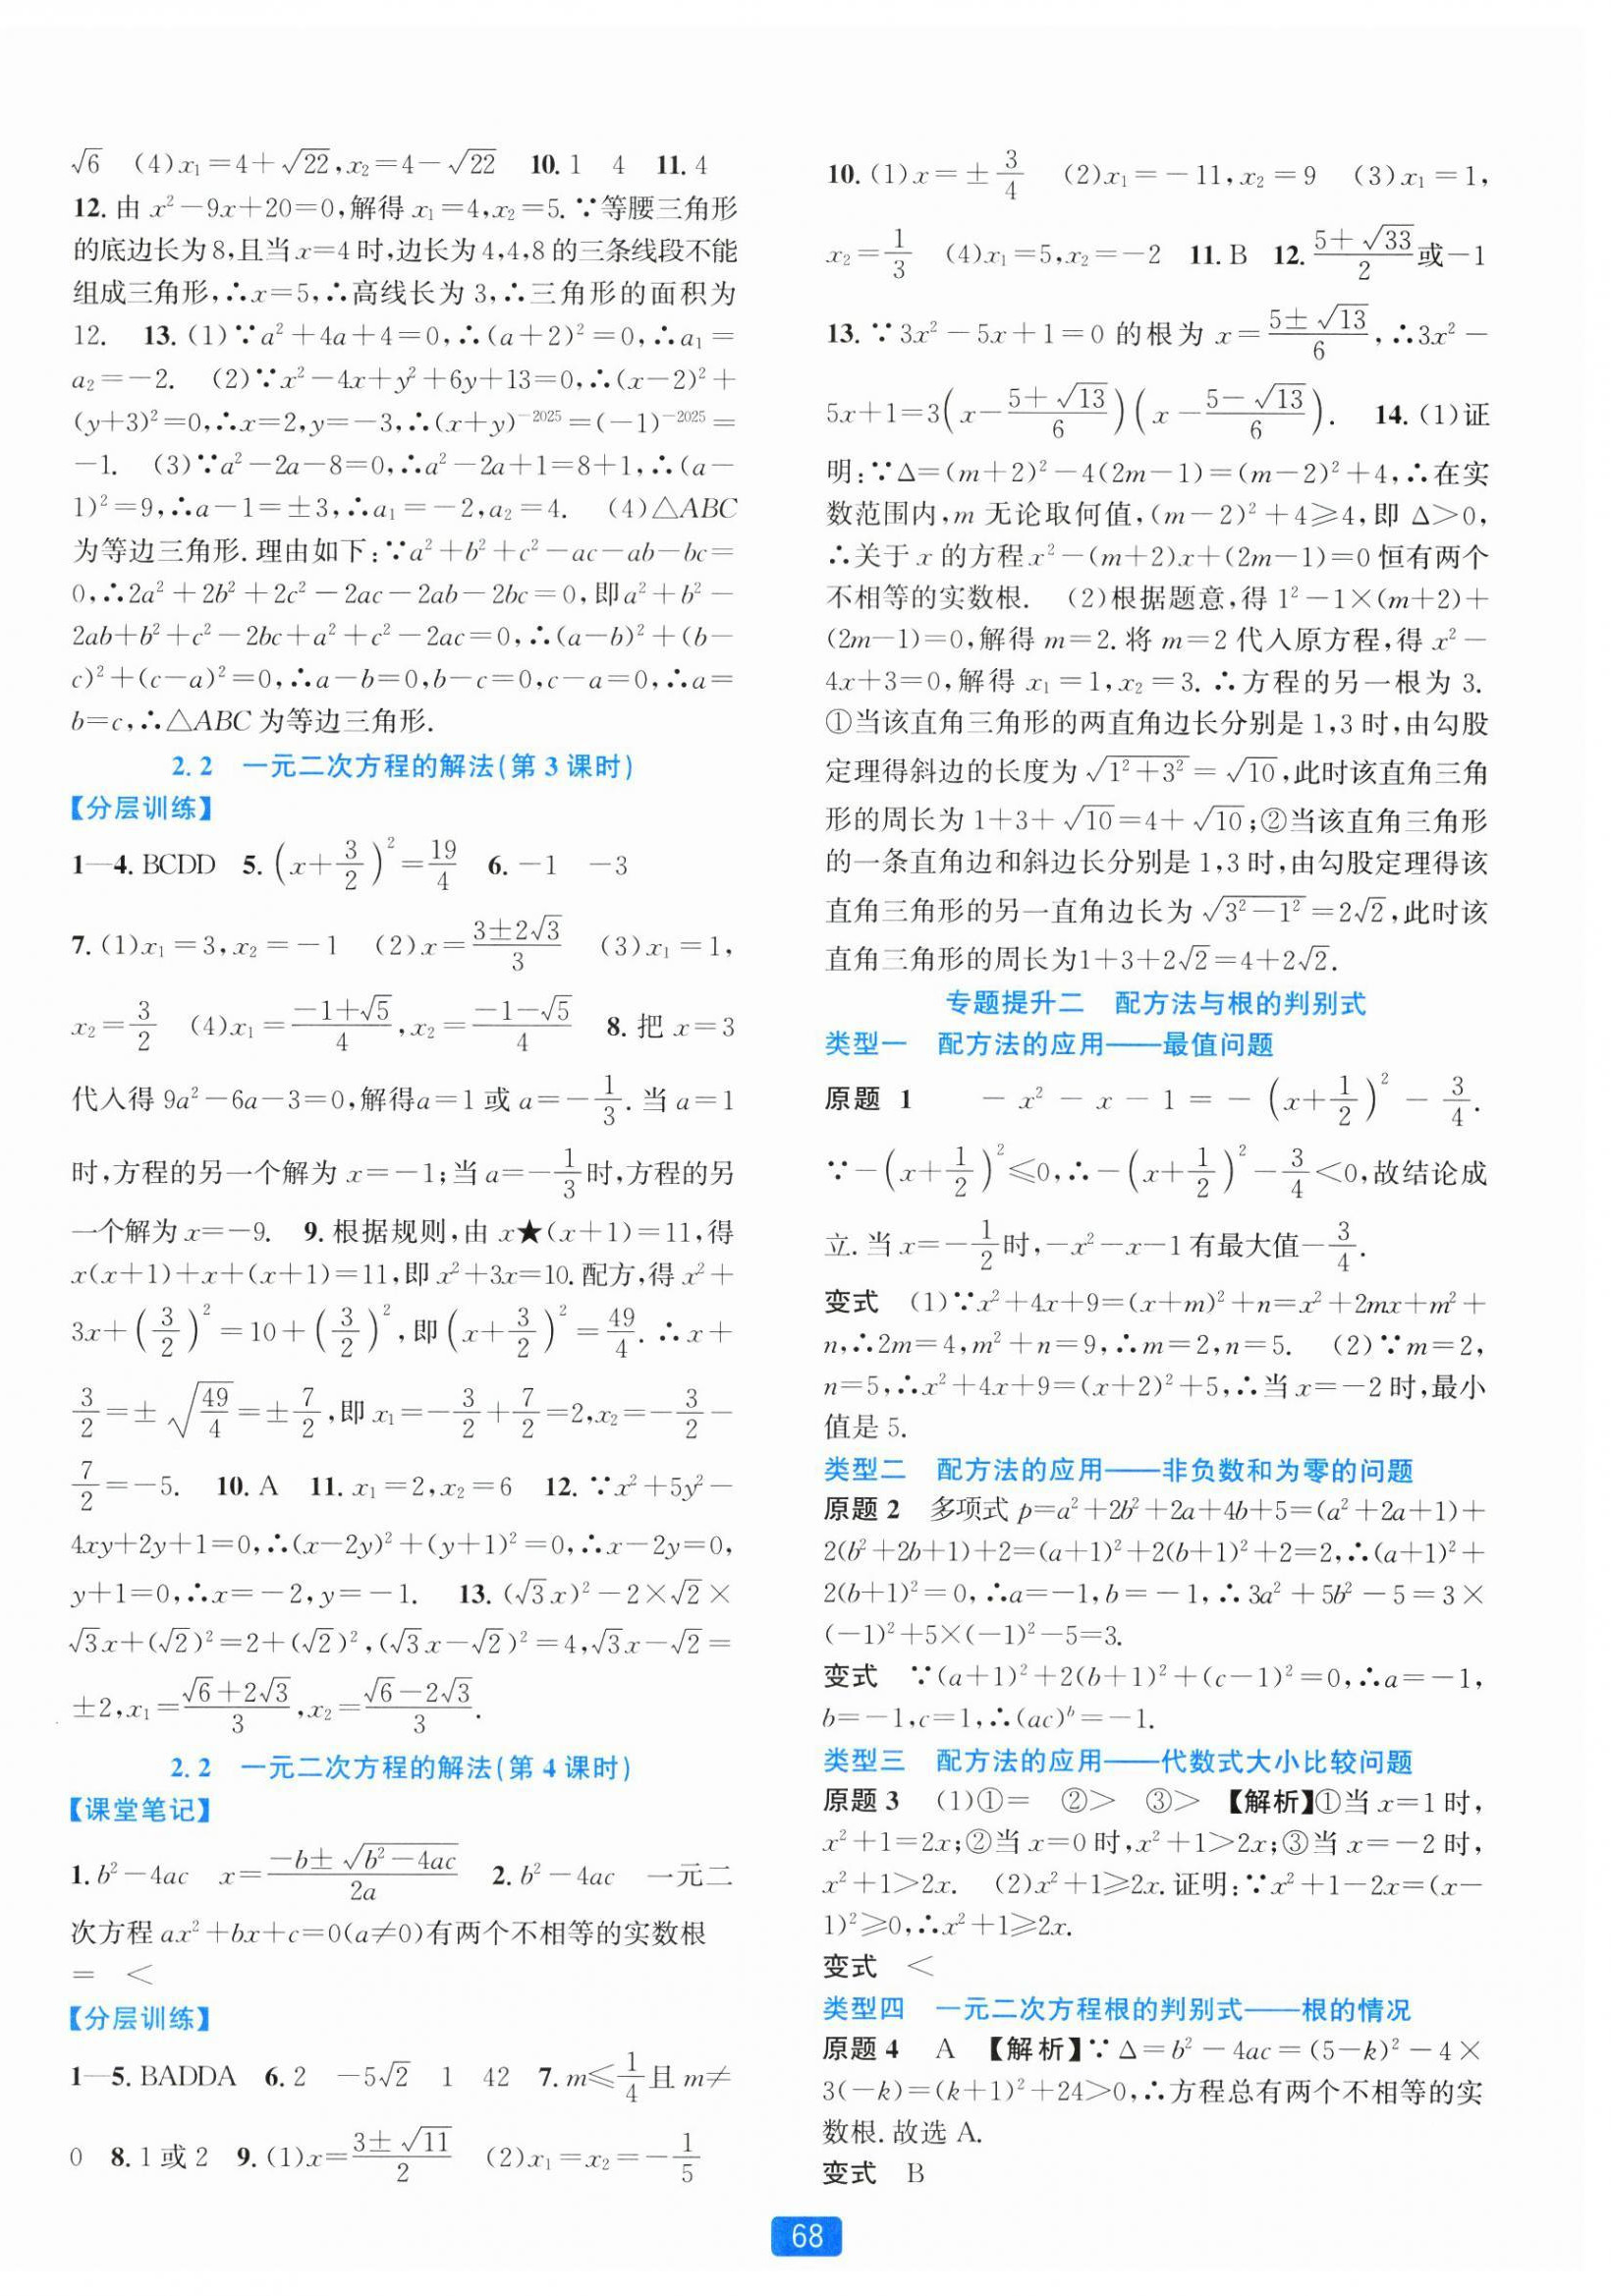 √6 (4)x₁=4+√22,x₂=4-√22 10. 1 4 11. 4
12. 由 x²-9x+20=0,解得 x₁=4,x₂=5. ∵等腰三角形
的底边长为8,且当x=4时,边长为4,4,8的三条线段不能
组成三角形,∴x=5,∴高线长为 3,∴三角形的面积为
12. 13. (1)∵a²+4a+4=0,∴(a+2)²=0,∴a₁=
a₂=-2. (2)∵x²-4x+y²+6y+13=0,∴(x-2)²+
(y+3)²=0,∴x=2,y=-3,∴(x+y)⁻²⁰²⁵=(-1)⁻²⁰²⁵=
-1. (3)∵a²-2a-8=0,∴a²-2a+1=8+1,∴(a-
1)²=9,∴a-1=±3,∴a₁=-2,a₂=4. (4)△ABC
为等边三角形. 理由如下:∵a²+b²+c²-ac-ab-bc=
0,∴2a²+2b²+2c²-2ac-2ab-2bc=0,即a²+b²-
2ab+b²+c²-2bc+a²+c²-2ac=0,∴(a-b)²+(b-
c)²+(c-a)²=0,∴a-b=0,b-c=0,c-a=0,∴a=
b=c,∴△ABC 为等边三角形.
2.2 一元二次方程的解法(第 3 课时)
【分层训练】
1—4. BCDD 5. (x+3/2)²=19/4 6. -1 -3
7. (1)x₁=3,x₂=-1 (2)x=(3±2√3)/3 (3)x₁=1,
x₂=3/2 (4)x₁=(-1+√5)/4,x₂=(-1-√5)/4 8. 把 x=3
代入得 9a²-6a-3=0,解得a=1 或 a=-1/3. 当 a=1
时,方程的另一个解为 x=-1;当 a=-1/3时,方程的另
一个解为 x=-9. 9. 根据规则,由 x★(x+1)=11,得
x(x+1)+x+(x+1)=11,即 x²+3x=10. 配方,得 x²+
3x+(3/2)²=10+(3/2)²,即(x+3/2)²=49/4. ∴x+
3/2=±√(49/4)=±7/2,即 x₁=-3/2+7/2=2,x₂=-3/2-
7/2=-5. 10. A 11. x₁=2,x₂=6 12. ∵x²+5y²-
4xy+2y+1=0,∴(x-2y)²+(y+1)²=0,∴x-2y=0,
y+1=0,∴x=-2,y=-1. 13. (√3x)²-2×√2×
√3x+(√2)²=2+(√2)²,(√3x-√2)²=4,√3x-√2=
±2,x₁=(√6+2√3)/3,x₂=(√6-2√3)/3.
2.2 一元二次方程的解法(第 4 课时)
【课堂笔记】
1. b²-4ac x=(-b±√(b²-4ac))/2a 2. b²-4ac 一元二
次方程 ax²+bx+c=0(a≠0)有两个不相等的实数根
= <
【分层训练】
1—5. BADDA 6. 2 -5√2 1 42 7. m≤1/4且 m≠
0 8. 1 或 2 9. (1)x=(3±√11)/2 (2)x₁=x₂=-1/5
10. (1)x=±3/4 (2)x₁=-11,x₂=9 (3)x₁=1,
x₂=1/3 (4)x₁=5,x₂=-2 11. B 12. (5+√33)/2或-1
13. ∵3x²-5x+1=0 的根为 x=(5±√13)/6,∴3x²-
5x+1=3(x-(5+√13)/6)(x-(5-√13)/6). 14. (1)证
明:∵Δ=(m+2)²-4(2m-1)=(m-2)²+4,∴在实
数范围内,m 无论取何值,(m-2)²+4≥4,即 Δ>0,
∴关于 x 的方程x²-(m+2)x+(2m-1)=0 恒有两个
不相等的实数根. (2)根据题意,得 1²-1×(m+2)+
(2m-1)=0,解得 m=2. 将 m=2 代入原方程,得 x²-
4x+3=0,解得 x₁=1,x₂=3. ∴方程的另一根为 3.
①当该直角三角形的两直角边长分别是 1,3 时,由勾股
定理得斜边的长度为√(1²+3²)=√10,此时该直角三角
形的周长为 1+3+√10=4+√10;②当该直角三角形
的一条直角边和斜边长分别是 1,3 时,由勾股定理得该
直角三角形的另一直角边长为√(3²-1²)=2√2,此时该
直角三角形的周长为1+3+2√2=4+2√2.
专题提升二 配方法与根的判别式
类型一 配方法的应用——最值问题
原题 1 -x²-x-1=-(x+1/2)²-3/4.
∵-(x+1/2)²≤0,∴-(x+1/2)²-3/4<0,故结论成
立. 当 x=-1/2时,-x²-x-1 有最大值-3/4.
变式 (1)∵x²+4x+9=(x+m)²+n=x²+2mx+m²+
n,∴2m=4,m²+n=9,∴m=2,n=5. (2)∵m=2,
n=5,∴x²+4x+9=(x+2)²+5,∴当 x=-2 时,最小
值是 5.
类型二 配方法的应用——非负数和为零的问题
原题 2 多项式 p=a²+2b²+2a+4b+5=(a²+2a+1)+
2(b²+2b+1)+2=(a+1)²+2(b+1)²+2=2,∴(a+1)²+
2(b+1)²=0,∴a=-1,b=-1,∴3a²+5b²-5=3×
(-1)²+5×(-1)²-5=3.
变式 ∵(a+1)²+2(b+1)²+(c-1)²=0,∴a=-1,
b=-1,c=1,∴(ac)ᵇ=-1.
类型三 配方法的应用——代数式大小比较问题
原题 3 (1)①= ②> ③> 【解析】①当 x=1 时,
x²+1=2x;②当 x=0 时,x²+1>2x;③当 x=-2 时,
x²+1>2x. (2)x²+1≥2x. 证明:∵x²+1-2x=(x-
1)²≥0,∴x²+1≥2x.
变式 <
类型四 一元二次方程根的判别式——根的情况
原题 4 A 【解析】∵Δ=b²-4ac=(5-k)²-4×
3(-k)=(k+1)²+24>0,∴方程总有两个不相等的实
数根. 故选 A.
变式 B
68